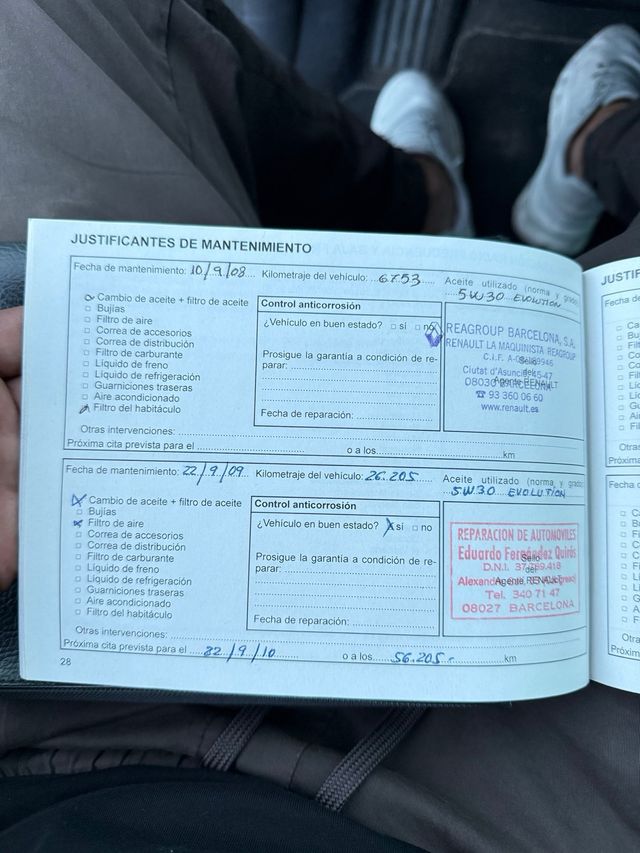 JUSTIFICANTES DE MANTENIMIENTO
Fecha de mantenimiento: 10/9/08 Kilometraje del vehículo: 6753 Aceite utilizado (norma y grado)
5W30 EVOLUTION
Cambio de aceite + filtro de aceite
Bujías
Filtro de aire
Correa de accesorios
Correa de distribución
Filtro de carburante
Líquido de freno
Líquido de refrigeración
Guarniciones traseras
Aire acondicionado
Filtro del habitáculo
Control anticorrosión
¿Vehículo en buen estado? sí no
Prosigue la garantía a condición de re-
parar:
Fecha de reparación:
REAGROUP BARCELONA, S.A.
RENAULT LA MAQUINISTA REAGROUP
C.I.F.
Sello
del
Agente RENAULT
Ciutat d'Asunción 45-47
08030 BARCELONA
☎ 93 360 06 60
www.renault.es
Otras intervenciones:
Próxima cita prevista para el o a los km
Fecha de mantenimiento: 22/9/09 Kilometraje del vehículo: 26.205 Aceite utilizado (norma y grado)
5W30 EVOLUTION
Cambio de aceite + filtro de aceite
Bujías
Filtro de aire
Correa de accesorios
Correa de distribución
Filtro de carburante
Líquido de freno
Líquido de refrigeración
Guarniciones traseras
Aire acondicionado
Filtro del habitáculo
Control anticorrosión
¿Vehículo en buen estado? X sí no
Prosigue la garantía a condición de re-
parar:
Fecha de reparación:
REPARACION DE AUTOMOVILES
Eduardo Fernández Quirós
Sello
D.N.I.
del
Agente RENAULT
Tel. 340 71 47
08027 BARCELONA
Otras intervenciones:
Próxima cita prevista para el 22/9/10 o a los 56.205 km
28
JUSTIF